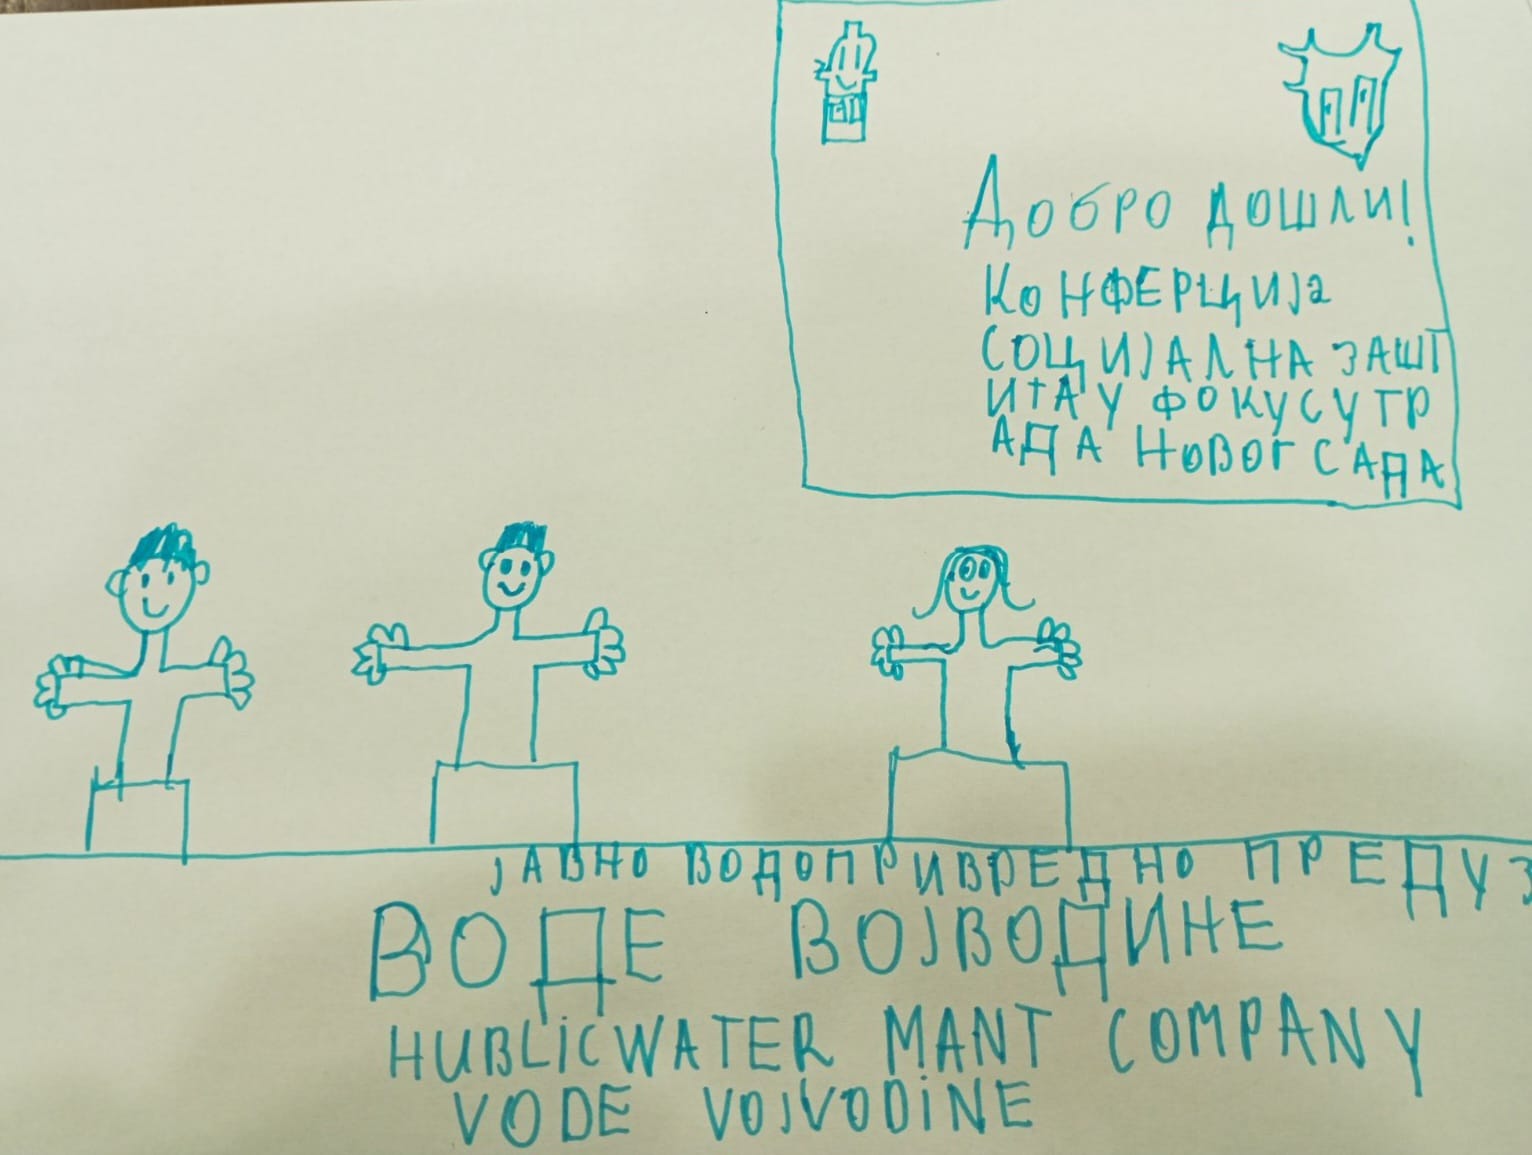 Добро дошли!
КОНФЕРЦИЈа
СОЦИЈАЛНА ЗАШТ
ИТА У ФОКУСУ ГР
АДА НОВОГ САДА
ЈАВНО ВОДОПРИВРЕДНО ПРЕДУЗ
ВОДЕ ВОЈВОДИНЕ
HUBLiCWATER MANT COMPANY
VODE VOJVODiNE